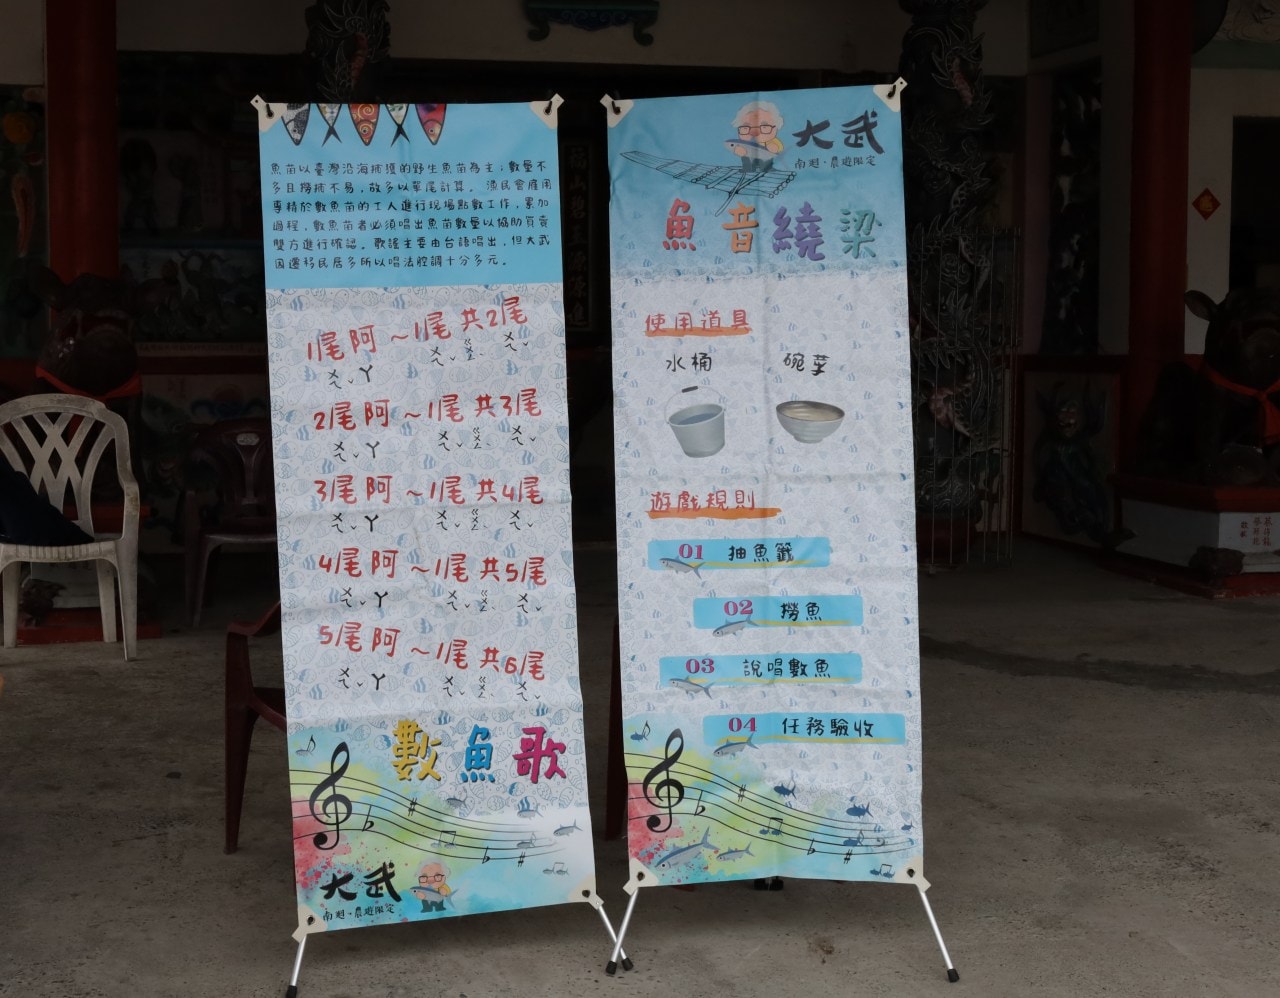 魚苗以臺灣沿海捕獲的野生魚苗為主；數量不
多且撈捕不易，故多以單尾計算。漁民會雇用
專精於數魚苗的工人進行現場點數工作，累加
過程，數魚苗者必須唱出魚苗數量以協助買賣
雙方進行確認。歌謠主要由台語唱出，但大武
因遷移民居多所以唱法腔調十分多元。
1尾阿～1尾共2尾
ㄨㄟˇㄚ ㄨㄟˇ ㄍㄨㄥˋ ㄨㄟˇ
2尾阿～1尾共3尾
ㄨㄟˇㄚ ㄨㄟˇ ㄍㄨㄥˋ ㄨㄟˇ
3尾阿～1尾共4尾
ㄨㄟˇㄚ ㄨㄟˇ ㄍㄨㄥˋ ㄨㄟˇ
4尾阿～1尾共5尾
ㄨㄟˇㄚ ㄨㄟˇ ㄍㄨㄥˋ ㄨㄟˇ
5尾阿～1尾共6尾
ㄨㄟˇㄚ ㄨㄟˇ ㄍㄨㄥˋ ㄨㄟˇ
數魚歌
大武
南迴·農遊限定
大武
南迴·農遊限定
魚音繞梁
使用道具
水桶 碗菜
遊戲規則
01 抽魚籤
02 撈魚
03 說唱數魚
04 任務驗收